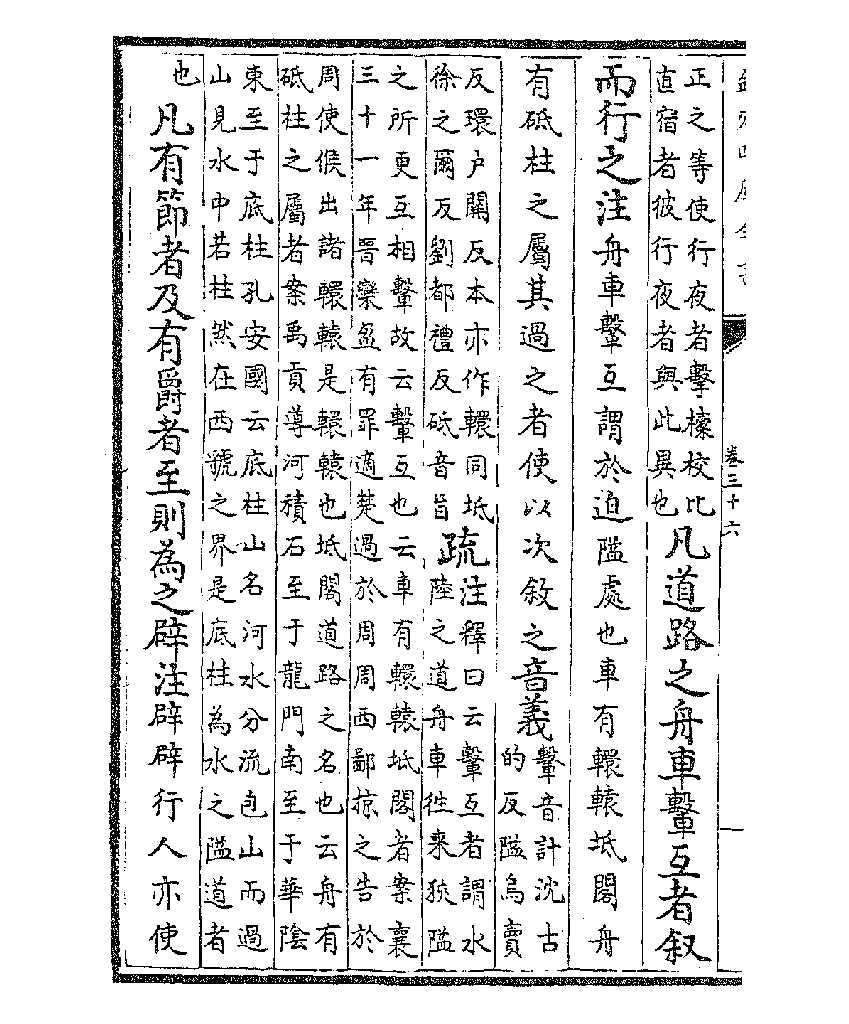 欽定四庫全書
卷三十六
正之等使行夜者擊㯓校比
直宿者彼行夜者與此異也
凡道路之舟車轚互者叙
而行之注舟車轚互謂於迫隘處也車有轘轅坻閣舟
有砥柱之屬其過之者使以次敘之音義
轚音計沈古
的反隘烏賣
反環户關反本亦作轘同坻
徐之爾反劉都禮反砥音旨
疏
注釋曰云轚互者謂水
陸之道舟車徃來狹隘
之所更互相轚故云轚互也云車有轘轅坻閣者案襄
三十一年晉欒盈有罪適楚過於周周西鄙掠之告於
周使候出諸轘轅是轘轅也坻閣道路之名也云舟有
砥柱之屬者案禹貢導河積石至于龍門南至于華陰
東至于底柱孔安國云底柱山名河水分流包山而過
山見水中若柱然在西虢之界是底柱為水之隘道者
也
凡有節者及有爵者至則為之辟注辟辟行人亦使